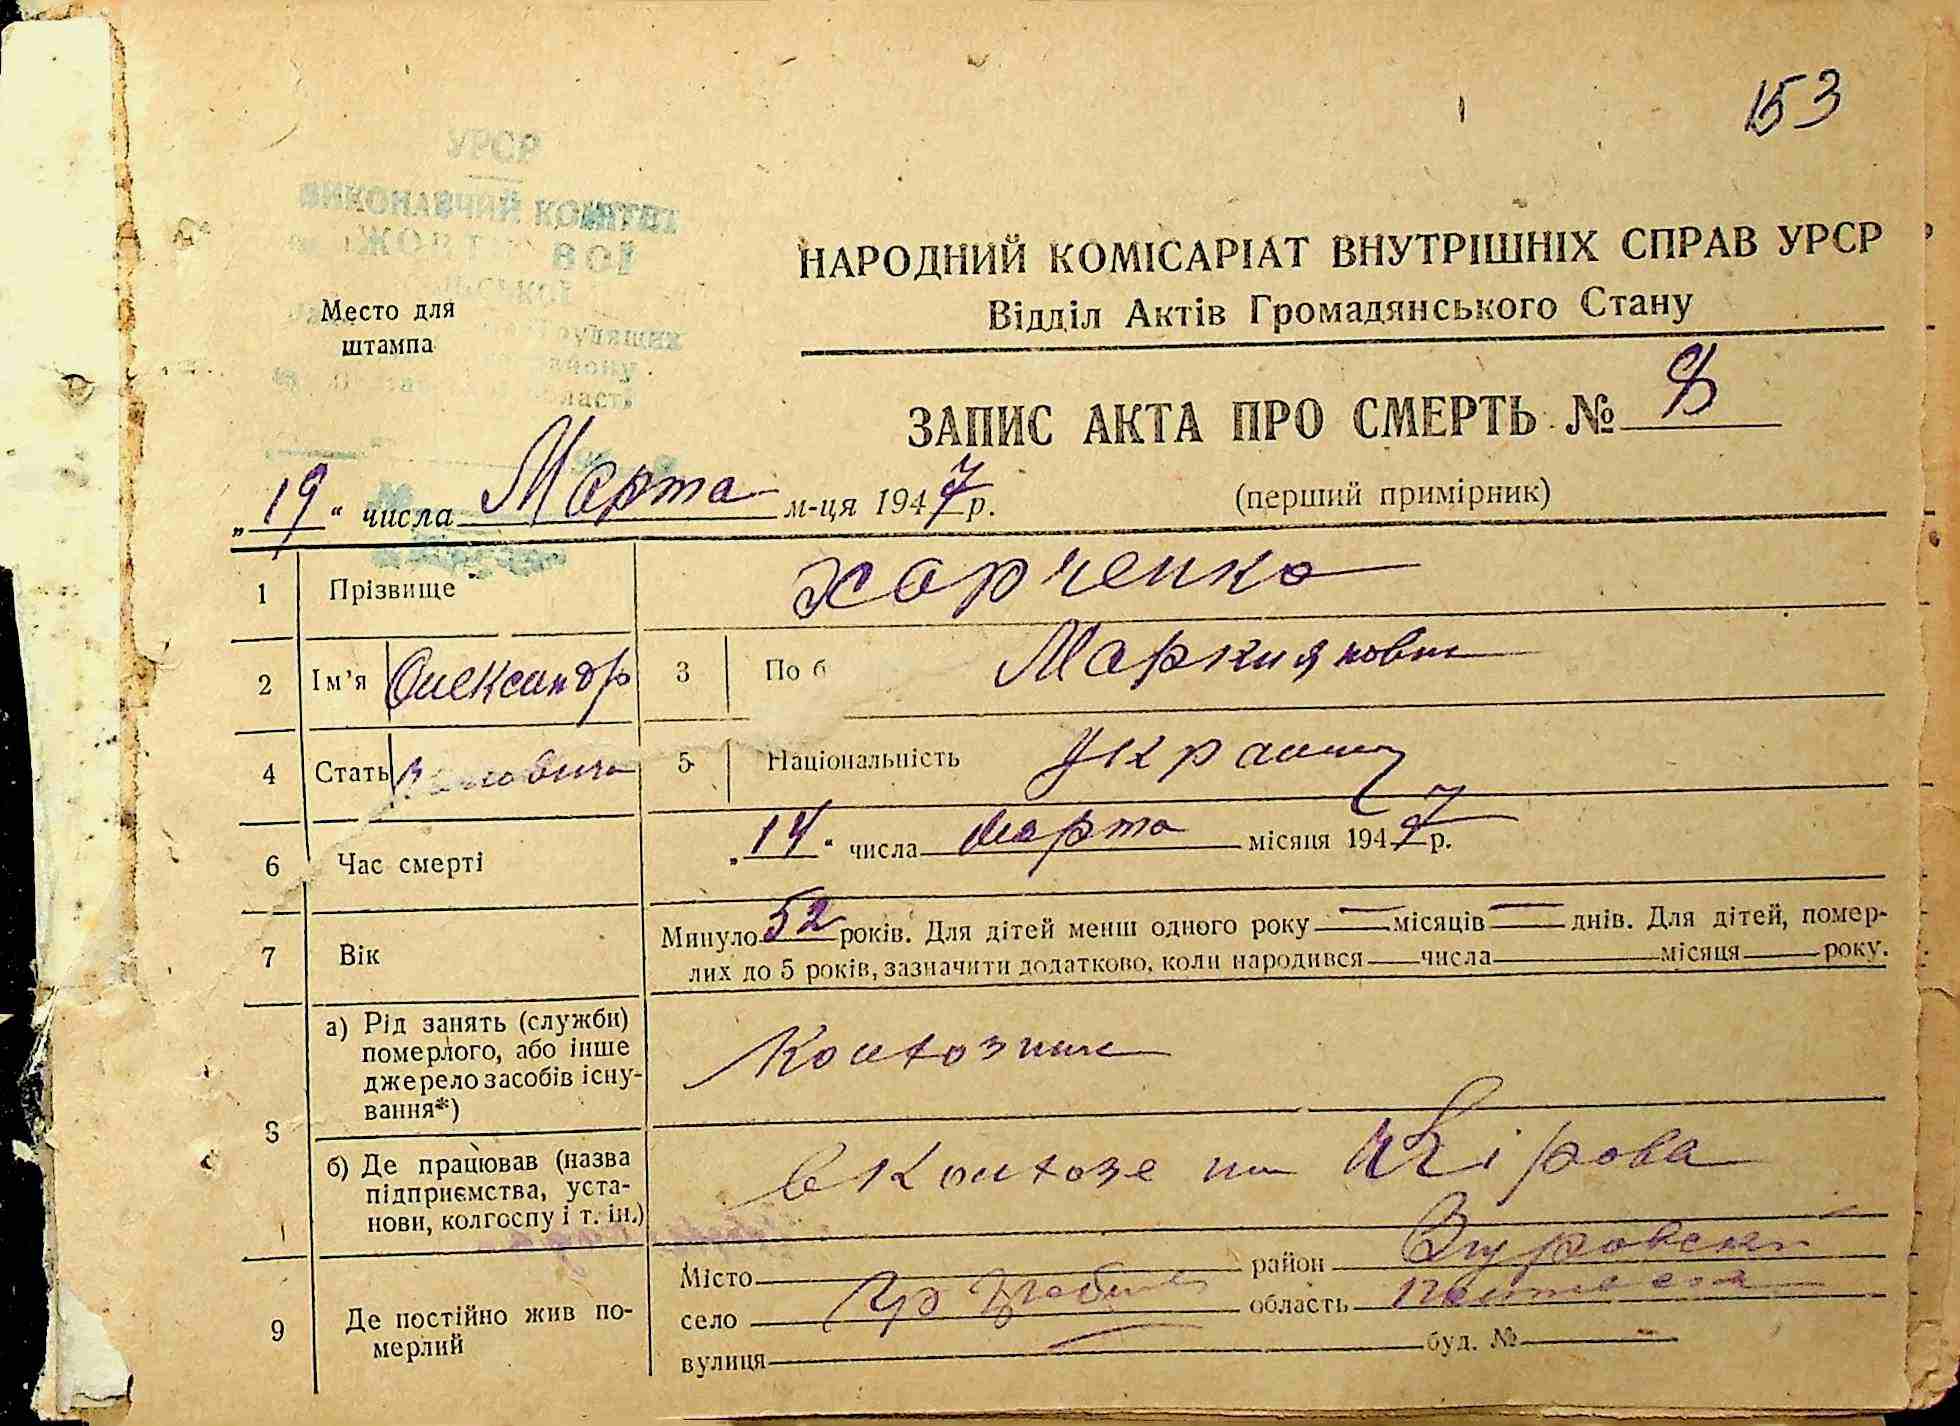 153
УРСР
ВИКОНАВЧИЙ КОМІТЕТ
НАРОДНИЙ КОМІСАРІАТ ВНУТРІШНІХ СПРАВ УРСР
Відділ Актів Громадянського Стану
Место для
штампа
ЗАПИС АКТА ПРО СМЕРТЬ № 8
(перший примірник)
„19“ числа Марта м-ця 1947 р.
1 Прізвище Харченко
2 Ім'я Олександр 3 По б Маркиянович
4 Стать 5 Національність Украинц
6 Час смерті „14“ числа марта місяця 1947 р.
7 Вік Минуло 52 років. Для дітей менш одного року — місяців — днів. Для дітей, помер-
лих до 5 років, зазначити додатково, коли народився числа місяця року.
8 а) Рід занять (служби)
померлого, або інше
джерело засобів існу-
вання*)
Колхозник
б) Де працював (назва
підприємства, уста-
нови, колгоспу і т. ін.)
в Колхозе им Кірова
9 Де постійно жив по-
мерлий
Місто район Згуровский
село область
вулиця буд. №